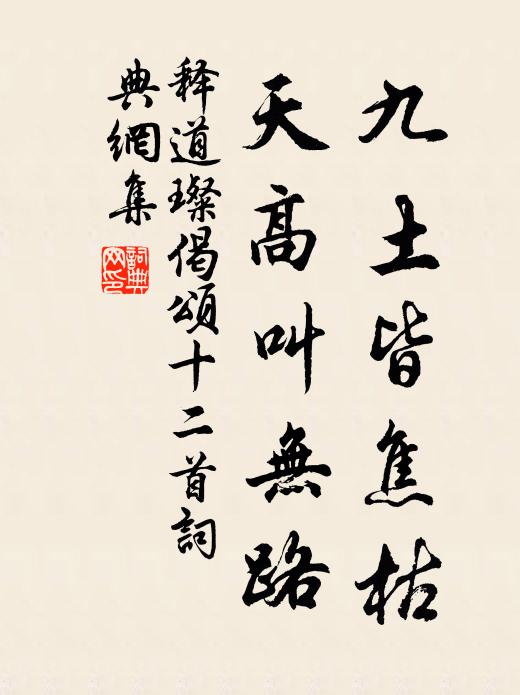 九土皆焦枯
天高叫無路
释道璨偈頌十二首詞
典網集
詞典
网印